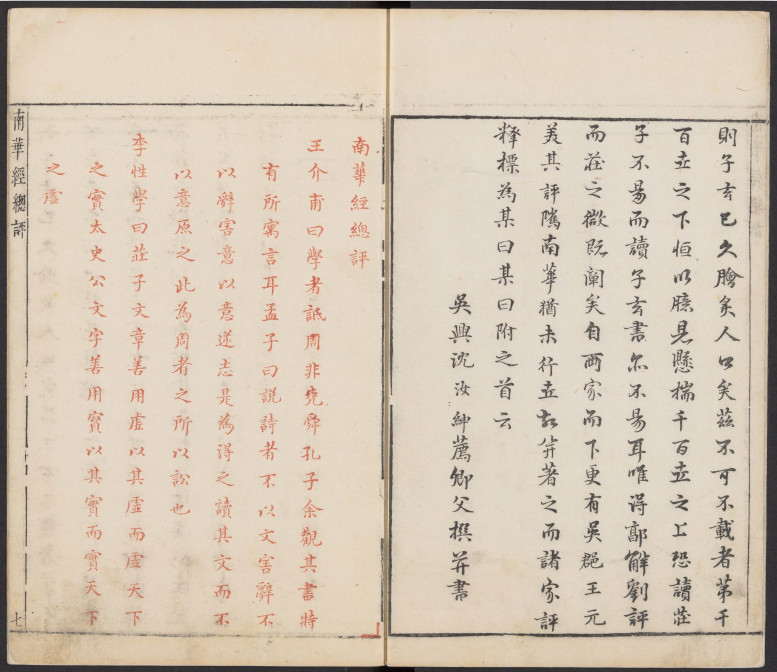 則子玄已久膾炙人口矣茲不可不載者第千
百世之下恒以臆見懸揣千百世之上恐讀莊
子不易而讀子玄書亦不易耳唯得郭解劉評
而莊之微既闡矣自兩家而下更有吳郡王元
美其評隲南華猶未行世故并著之而諸家評
釋標為某曰某曰附之首云
吳興沈汝紳薦卿父撰并書
南華經總評
王介甫曰學者詆周非堯舜孔子余觀其書特
有所寓言耳孟子曰說詩者不以文害辭不
以辭害意以意逆志是為得之讀其文而不
以意原之此為周者之所以訟也
李性學曰莊子文章善用虛以其虛而虛天下
之實太史公文字善用實以其實而實天下
之虛
南華經總評
七